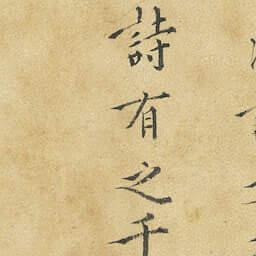 詩有之千